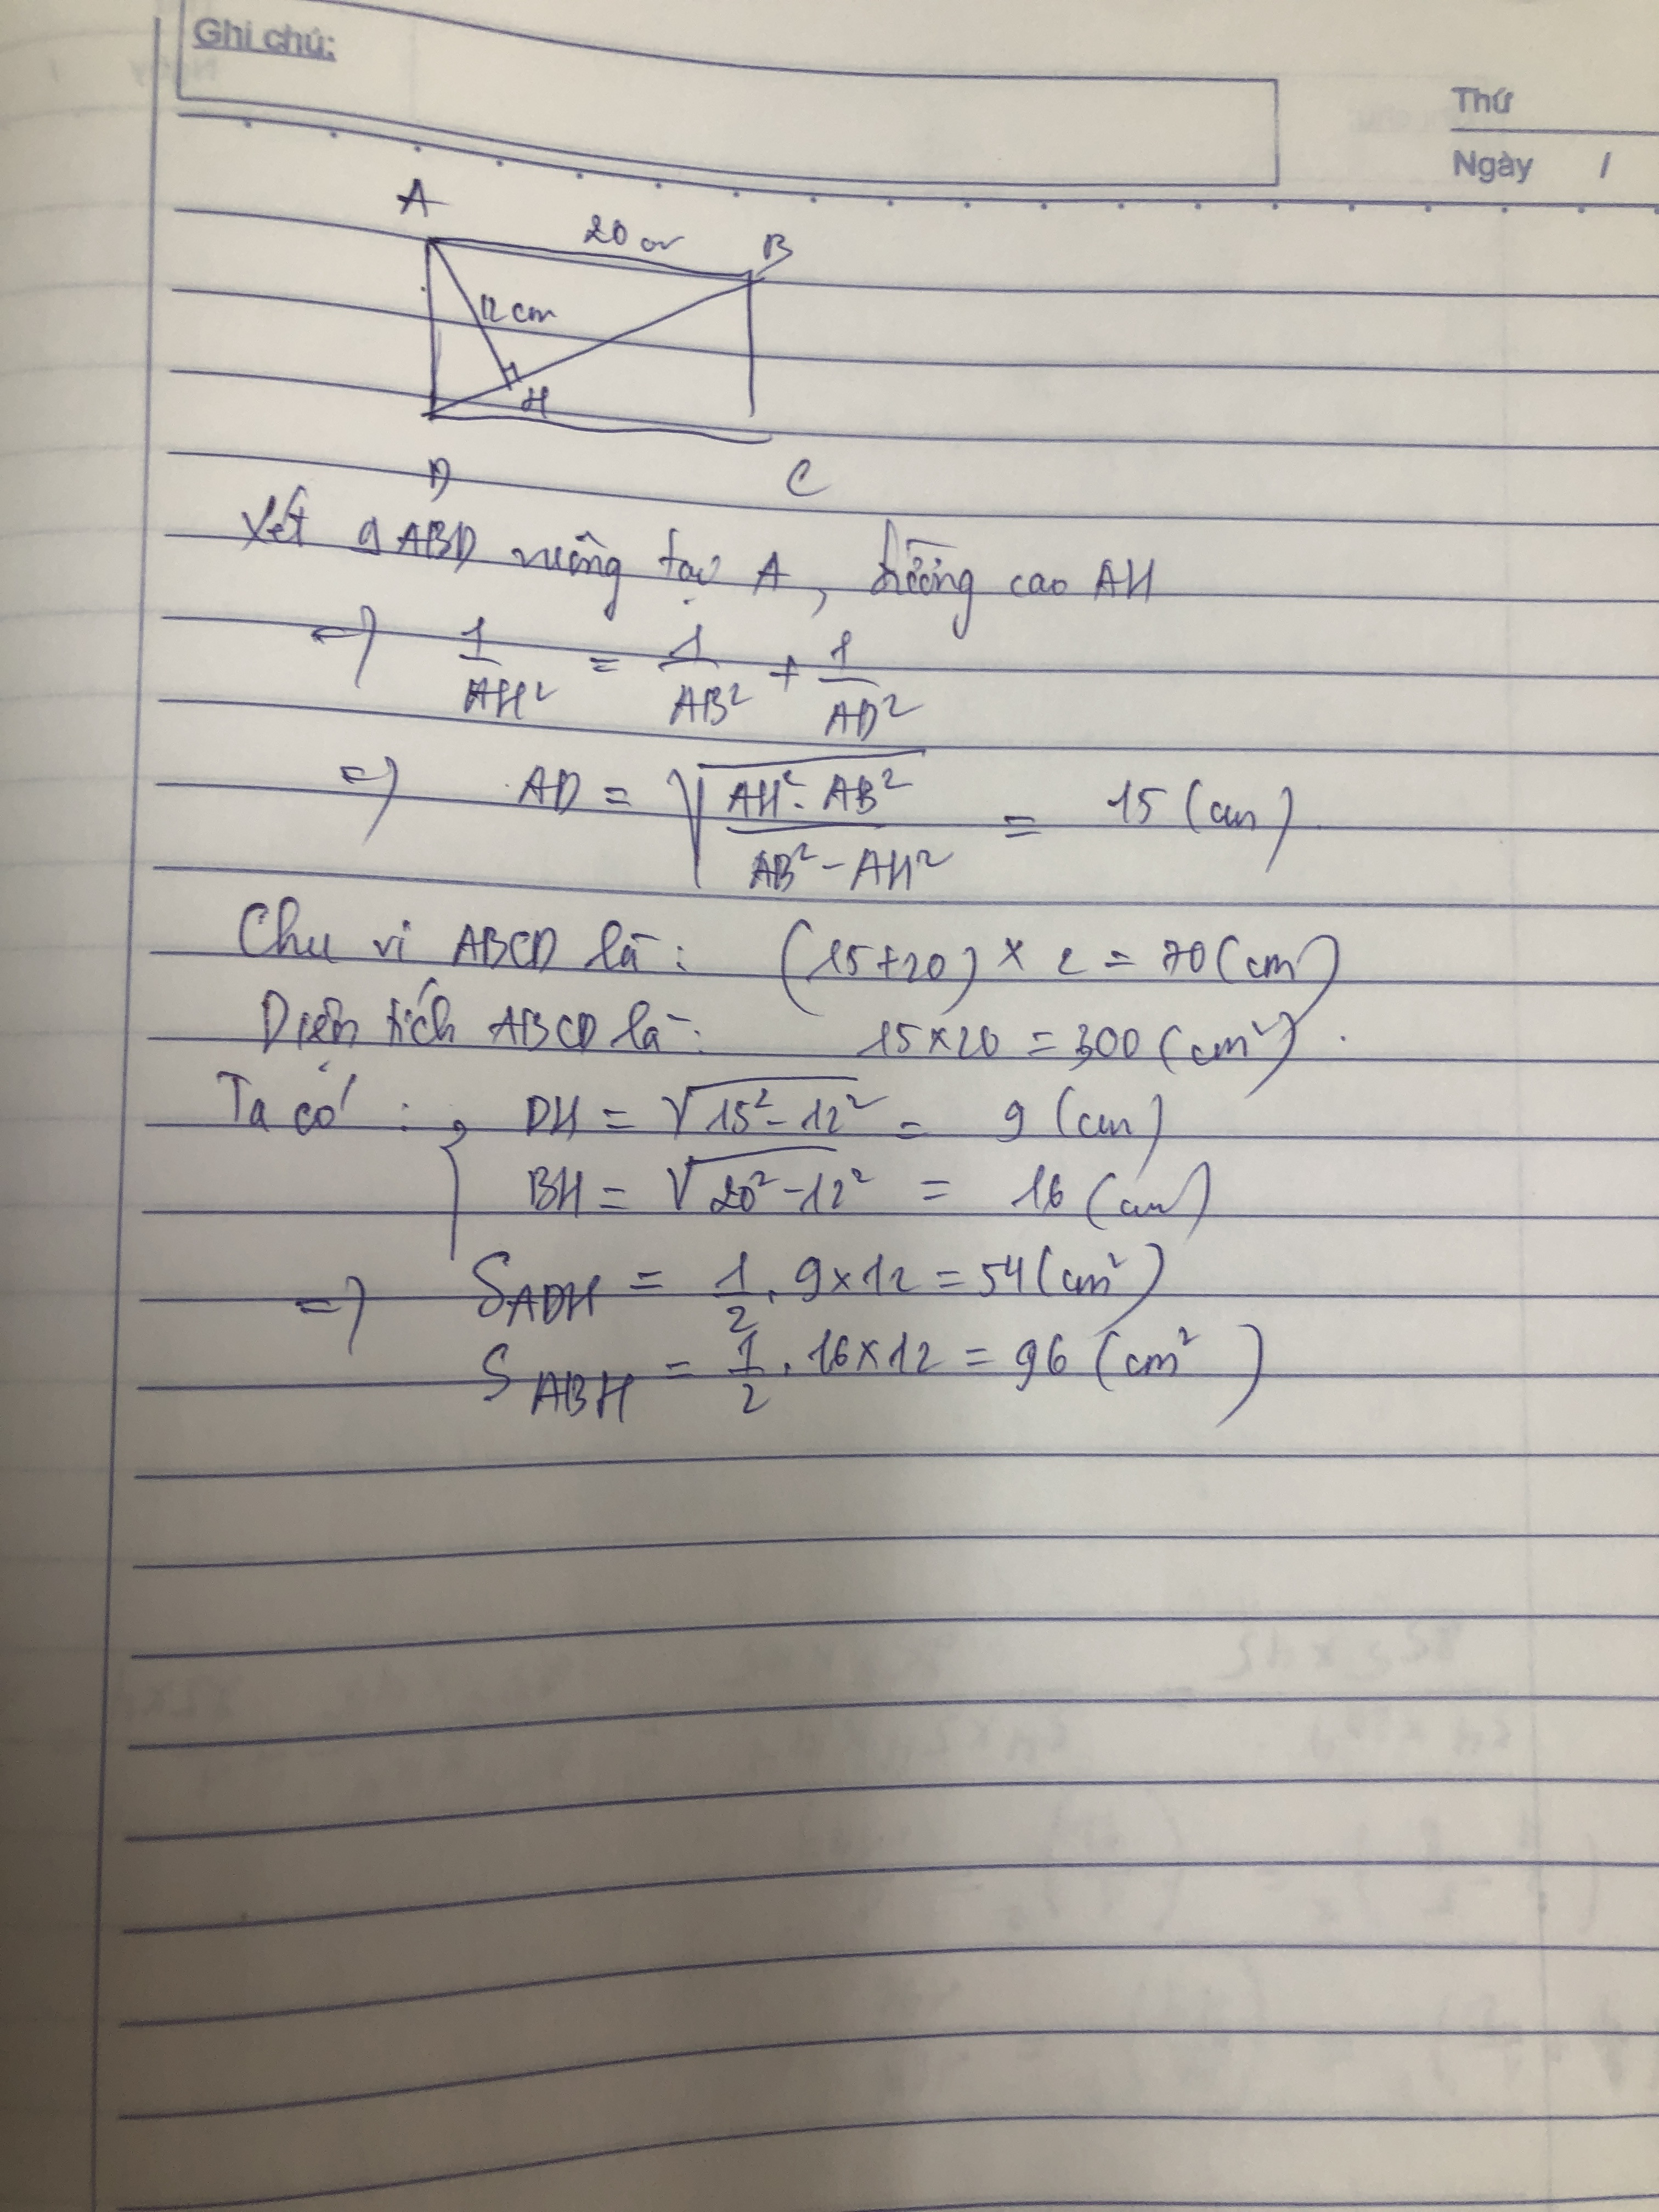 Ghi chú:
Thứ
Ngày /
A
20 cm
B
12 cm
H
D
C
Xét g ABD vuông tại A, đường cao AH
=> 1/AH² = 1/AB² + 1/AD²
=> AD = √(AH². AB² / AB² - AH²) = 15 (cm).
Chu vi ABCD là: (15+20) × 2 = 70 (cm)
Diện tích ABCD là: 15×20 = 300 (cm²).
Ta có: { DH = √15² - 12² = 9 (cm)
BH = √20² - 12² = 16 (cm)
=> S ADH = 1/2 . 9×12 = 54 (cm²)
S ABH = 1/2 . 16×12 = 96 (cm²)